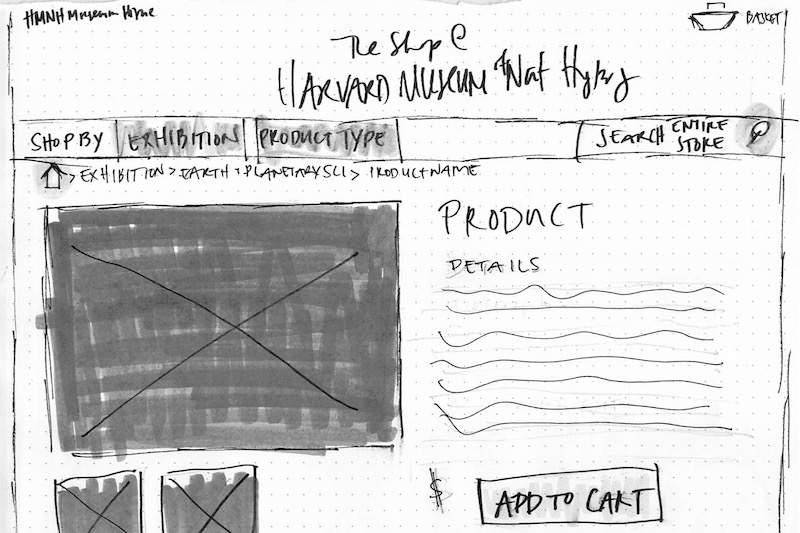 HMNH Museum Home
BASKET
The Shop @
HARVARD MUSEUM of Nat History
SHOP BY EXHIBITION PRODUCT TYPE SEARCH ENTIRE STORE
> EXHIBITION > EARTH + PLANETARY SCI > PRODUCT NAME
PRODUCT
DETAILS
$
ADD TO CART